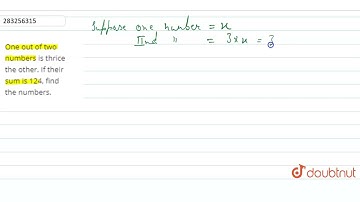 283256315
One out of two
numbers is thrice
the other. If their
sum is 124, find
the numbers.
Suppose one number = x
IInd " = 3 * x = 3
doubtnut